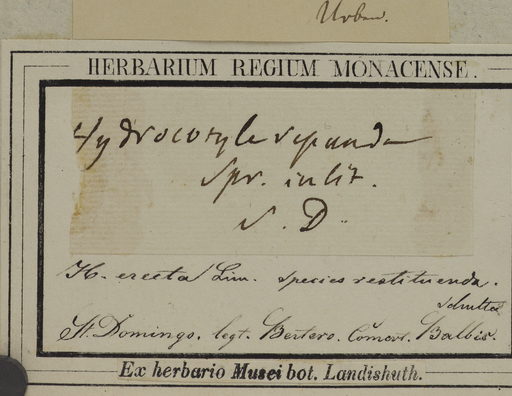 Urban.
HERBARIUM REGIUM MONACENSE.
Hydrocotyle repanda
Spr. in lit.
S. D.
H. erecta Lin. species restituenda.
Schultes
St. Domingo. legt. Bertero. Comm. Balbis.
Ex herbario Musei bot. Landishuth.